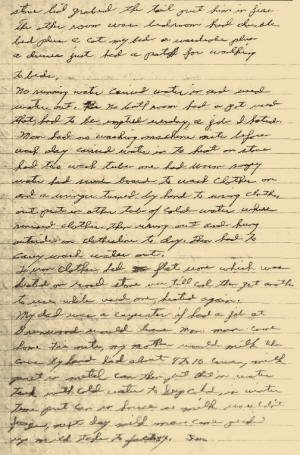 stove he'd grabed the tail put him in fire
The other room was bedroom had double
bed plus a cot my bed a wardrobe plus
a dresser just had a path for walking
to beds.
No running water carried water in and used
water out. No bathroom had a pot used
that had to be emptied everyday, a job I hated.
Mom had no washing machine nite before
wash day carried water in to heat on stove
had two wash tubs one had warm soapy
water had board to wash clothes on
and a wringer turned by hand to wring clothes
out put in other tub of cold water where
rinsed clothes then wrung out and hung
outside on clothesline to dry. Then had to
carry wash water out.
To iron clothes had flat irons which was
heated on wood stove till cold then got another
to use, while used one heated again.
My dad was a carpenter if had a job at
would leave Mon morn come
home Fri nite, my mother would milk the
cows by hand had about 8 to 10 cows, milk
put in metal can then put the in water
tank with cold water to keep cold, in winter
time put can in house so milk wouldn't
freeze, next day milk man came picked
up milk take to factory.